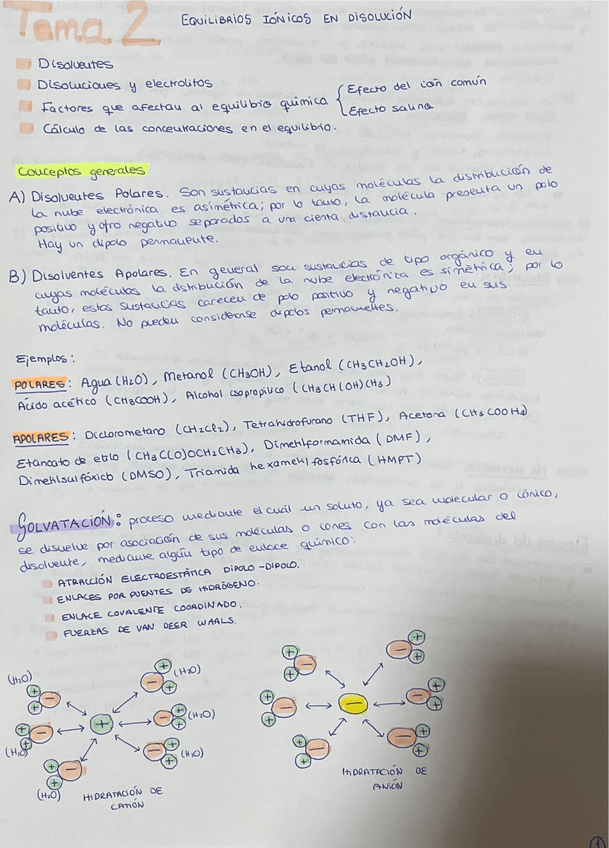 Tema 2 EQUILIBRIOS IÓNICOS EN DISOLUCIÓN
Disolventes
Disoluciones y electrolitos
Factores que afectan al equilibrio química { Efecto del ión común
Efecto salino
Cálculo de las concentraciones en el equilibrio.
Conceptos generales
A) Disolventes Polares. Son sustancias en cuyas moléculas la distribución de
la nube electrónica es asimétrica; por lo tanto, la molécula presenta un polo
positivo y otro negativo separados a una cierta distancia.
Hay un dipolo permanente.
B) Disolventes Apolares. En general son sustancias de tipo orgánico y en
cuyas moléculas la distribución de la nube electrónica es simétrica; por lo
tanto, estas sustancias carecen de polo positivo y negativo en sus
moléculas. No pueden considerarse dipolos permanentes.
Ejemplos:
POLARES: Agua (H2O), Metanol (CH3OH), Etanol (CH3CH2OH),
Ácido acético (CH3COOH), Alcohol isopropílico (CH3CH(OH)CH3)
APOLARES: Diclorometano (CH2Cl2), Tetrahidrofurano (THF), Acetona
Etanoato de etilo (CH3C(O)OCH2CH3), Dimetilformamida (DMF),
Dimetilsulfóxido (DMSO), Triamida hexametilfosfórica (HMPT)
SOLVATACIÓN: proceso mediante el cuál un soluto, ya sea molecular o iónico,
se disuelve por asociación de sus moléculas o iones con las moléculas del
disolvente, mediante algún tipo de enlace químico:
ATRACCIÓN ELECTROESTÁTICA DIPOLO-DIPOLO.
ENLACES POR PUENTES DE HIDRÓGENO.
ENLACE COVALENTE COORDINADO.
FUERZAS DE VAN DEER WAALS.
(H2O) + + − − + + (H2O)
(H2O) + + − + − + + (H2O)
(H2O) + + − − + + (H2O)
HIDRATACIÓN DE
CATIÓN
+ + − − + +
+ + − − − + +
+ + − − + +
HIDRATACIÓN DE
ANIÓN
1